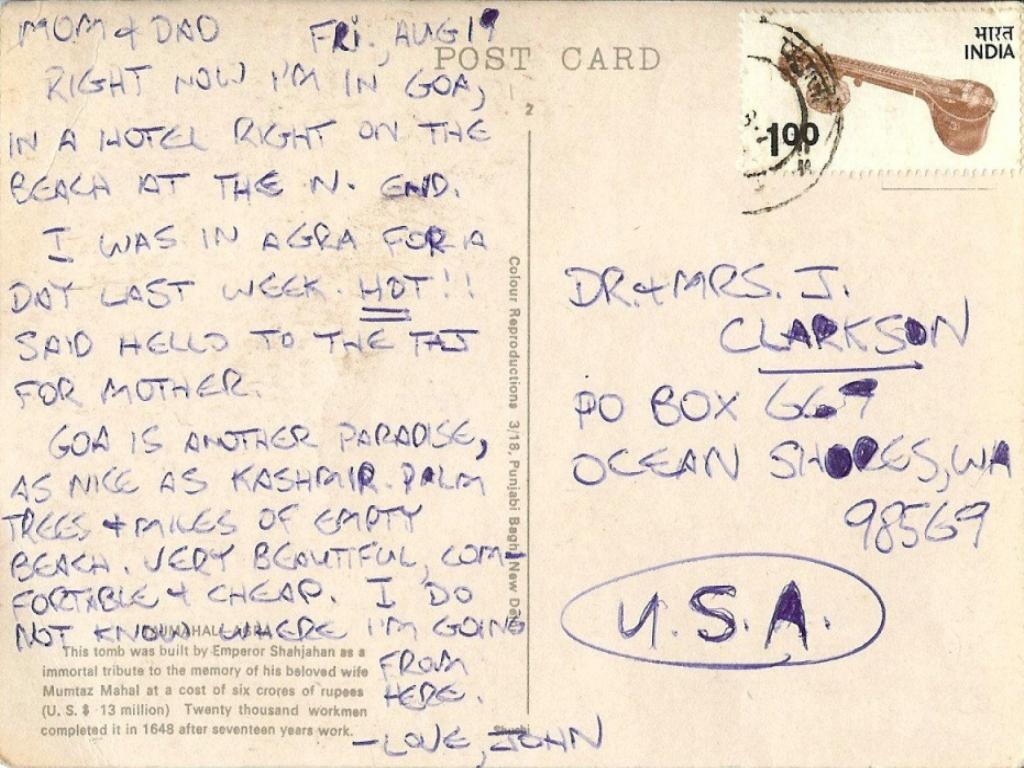 MOM & DAD FRI., AUG 19
POST CARD
RIGHT NOW I'M IN GOA,
IN A HOTEL RIGHT ON THE
BEACH AT THE N. END.
I WAS IN AGRA FOR A
DAY LAST WEEK. HOT!!
SAID HELLO TO THE TAJ
FOR MOTHER.
GOA IS ANOTHER PARADISE,
AS NICE AS KASHMIR. PALM
TREES & MILES OF EMPTY
BEACH. VERY BEAUTIFUL, COM-
FORTABLE & CHEAP. I DO
NOT KNOW WHERE I'M GOING
FROM
HERE.
-LOVE, JOHN
AGRA
This tomb was built by Emperor Shahjahan as a
immortal tribute to the memory of his beloved wife
Mumtaz Mahal at a cost of six crores of rupees
(U. S. $ 13 million) Twenty thousand workmen
completed it in 1648 after seventeen years work.
2
Colour Reproductions 3/18, Punjabi Bagh New Delhi
भारत
INDIA
100
DR. & MRS. J.
CLARKSON
PO BOX 669
OCEAN SHORES, WA
98569
U.S.A.